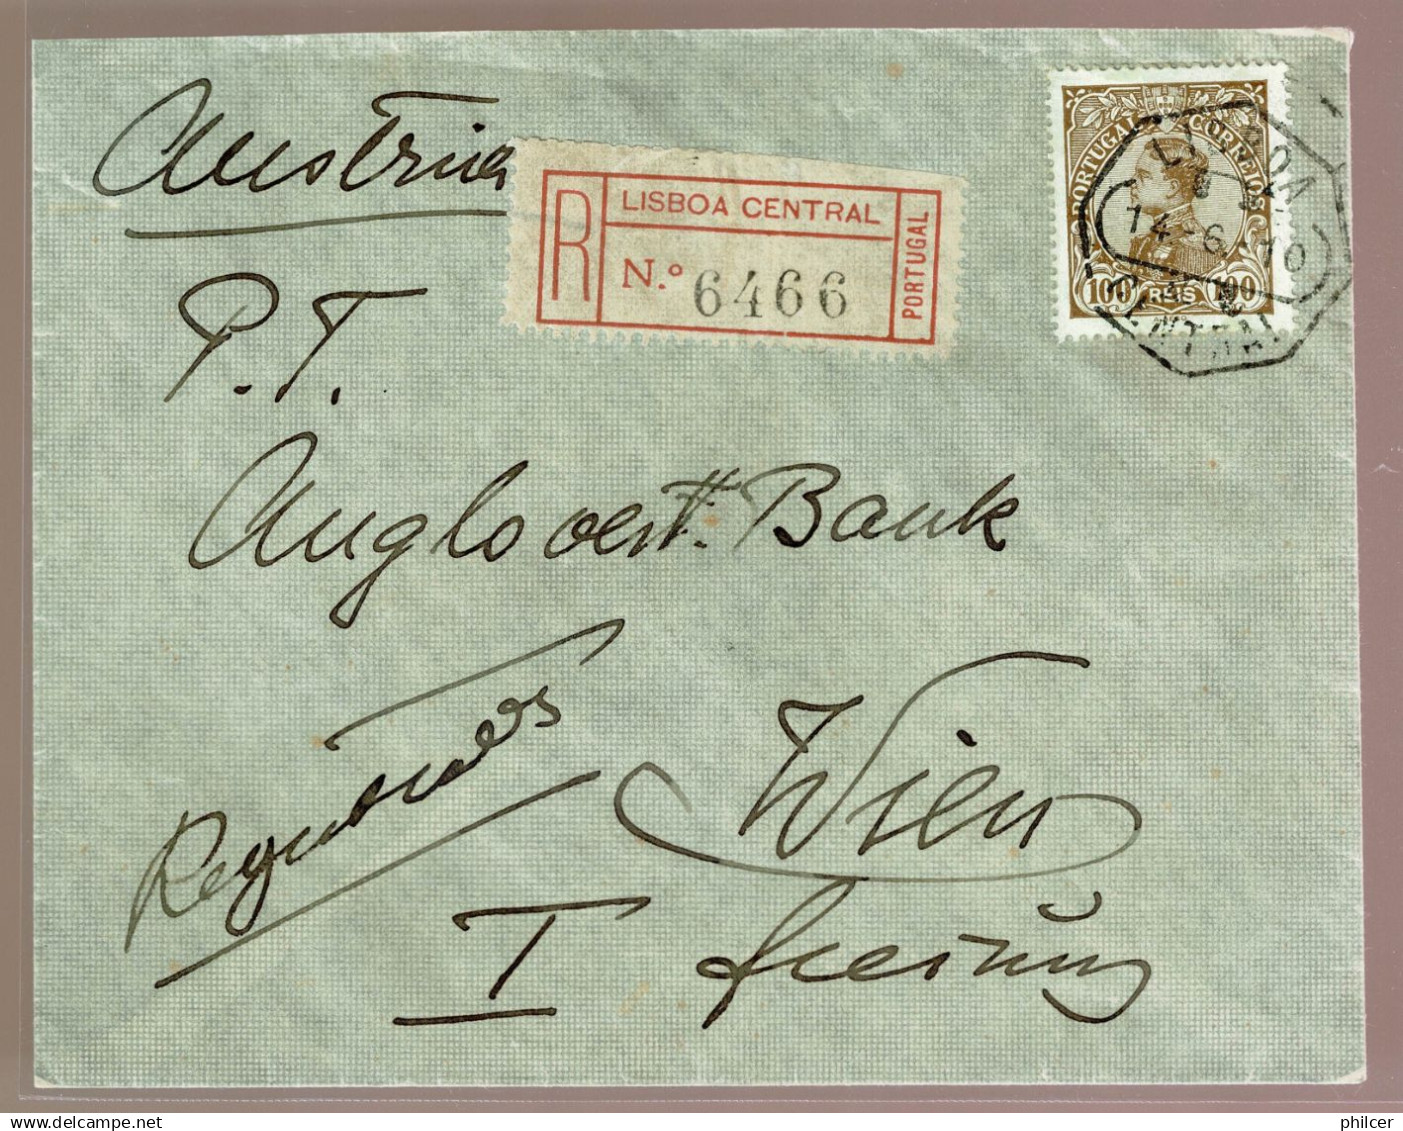 Austria
R
LISBOA CENTRAL
N.º 6466
PORTUGAL
PORTUGAL CORREIOS
100 REIS 100
LISBOA
14-6 10
CENTRAL
P. T.
Anglo oest. Bank
Wien
I
philcer